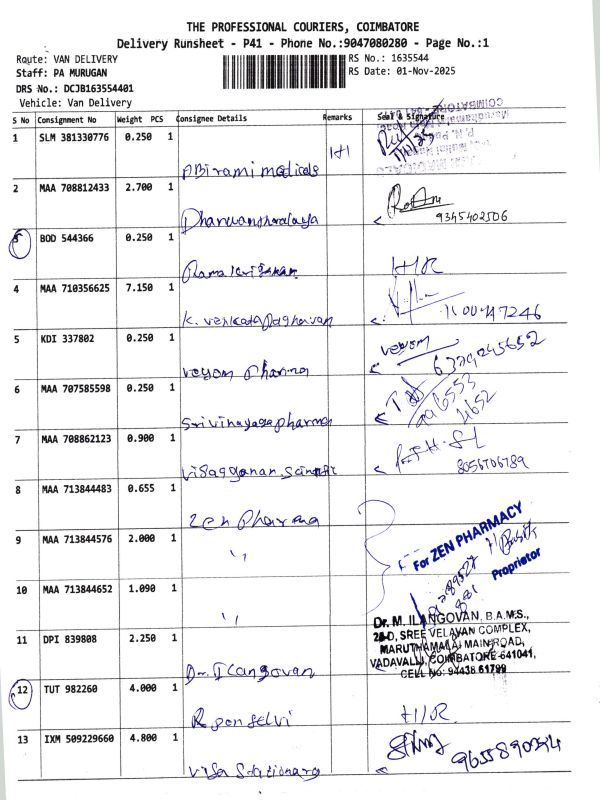 THE PROFESSIONAL COURIERS, COIMBATORE
Delivery Runsheet - P41 - Phone No.:9047080280 - Page No.:1
Route: VAN DELIVERY
RS No.: 1635544
Staff: PA MURUGAN
RS Date: 01-Nov-2025
DRS No.: DCJB163554401
Vehicle: Van Delivery
S No Consignment No Weight PCS Consignee Details Remarks Seal & Signature
1 SLM 381330776 0.250 1
2 MAA 708812433 2.700 1
9345402506
3 BOD 544366 0.250 1
Ramakrishnan
4 MAA 710356625 7.150 1
K. Venkata Raghavan
5 KDI 337802 0.250 1
veyom
veyom Pharma
6 MAA 707585598 0.250 1
Srivinayagapharma
7 MAA 708862123 0.900 1
8056706789
8 MAA 713844483 0.655 1
Zen Pharma
9 MAA 713844576 2.000 1
For ZEN PHARMACY
Proprietor
10 MAA 713844652 1.090 1
11 DPI 839808 2.250 1
Dr. M. ILANGOVAN, B.A.M.S.,
28-D, SREE VELAVAN COMPLEX,
MARUTHAMALAI MAIN ROAD,
VADAVALLI, COIMBATORE-641041,
CELL No: 94438 61799
Dr. Ilangovan
12 TUT 982260 4.000 1
R ponselvi
13 IXM 509229660 4.800 1
Visa Stationary